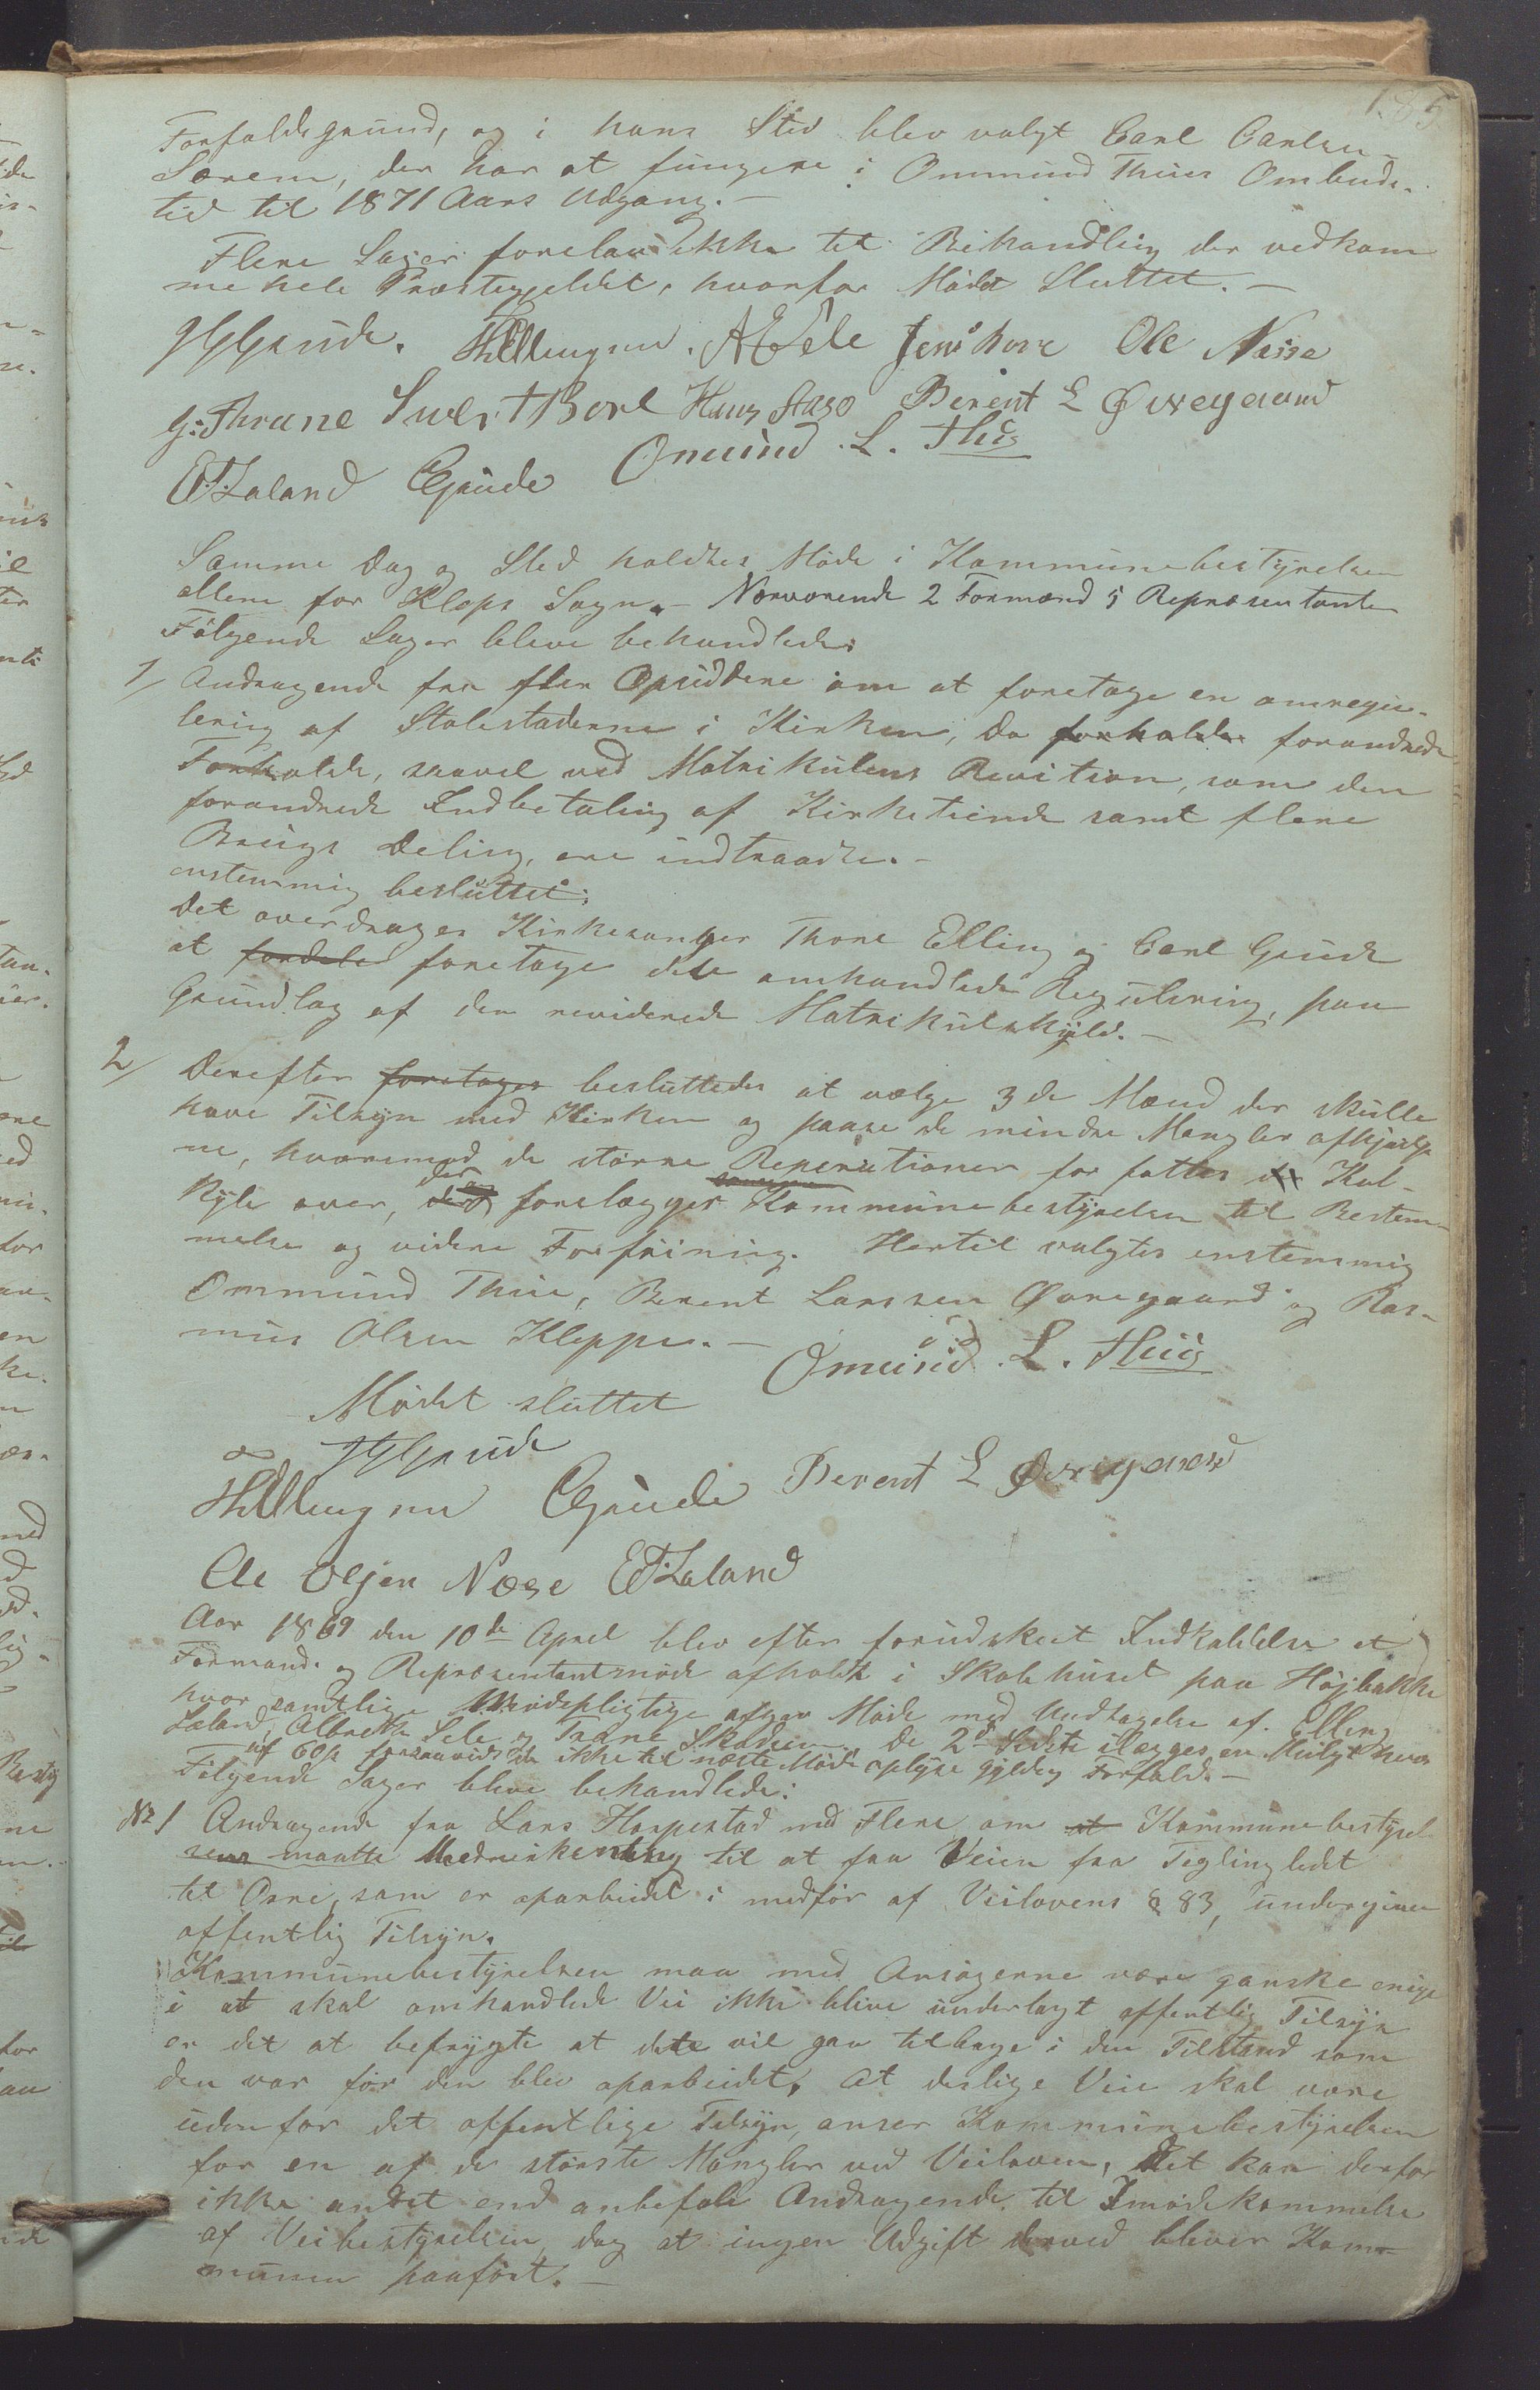 185
Forfaldsgrund, og i hans Sted blev valgt Carl Carlsen
Sørem, der har at fungere i Ommund Thues Ombuds-
tid til 1871 Aars Udgang.-
Flere Sager forelaa ikke til Behandling der vedkom
me hele Præstegjeldet, hvorfor Mødet sluttet.-
Grude. AESele Jens hove Ole Næsse
G: Thrane Hans Aase Berent L Øvregaard
ETZaland CGrude Omund. L. Thu
Samme Dag og Sted holdtes Møde i Kommunebestyrelsen
allene for Kleps Sogn.- Nærværende 2 Formænd 5 Repræsentanter
Følgende Sager bleve behandlede:
1/ Andragende fra fler Opsiddere om at foretage en omregu-
lering af Stolestaderne i Kirken, da forholde forandrede
Forholde, saavel ved Matrikulens Revition, som den
forandrede Indbetaling af Kirketiende samt flere
Brugs Deling, ere indtraadte.-
enstemmig besluttet:
Det overdrages Kirkesanger Thore Elling og Carl Grude
at fordele foretage dete omhandlede Regulering, paa
Grundlag af den reviderede Matrikulskyld.-
2/ Derefter foretoges besluttedes at vælge 3de Mænd der skulle
have Tilsyn med Kirken og paase de mindre Mangler afhjælpe
ne, hvorimod de større Reperationer for fattes Kal-
kyle over, der forelægges Kommunebestyrelsen til Bestem-
melse og videre Forføining. Hertil valgtes enstemmig
Ommund Thue, Berent Larssen Øvregaard og Ras-
mus Olsen Kleppe.-
Omund. L. Thu
Mødet sluttet
Grude
CGrude Berent L Øvregaard
Ole Olsen Næse ETZaland
Aar 1869 den 10de April blev efter forudskeet Indkaldelse et
Formands og Repræsentantmøde afholdt i Skolehuset paa Højbakke
hvor samtlige Mødepligtige afgav Møde med Undtagelse af Elling
Laland, Albreth Sele og Trane Skadsem. De 2de Sidste ilægges en Mulgt hver
af 60 s forsaavidt de ikke til næste Møde oplyse gyldig Forfald.-
Følgende Sager bleve behandlede:
No 1 Andragende fra Lars Horpestad med Flere om at Kommunebestyrel
sens maatte Medvirkening til at faa Veien fra Teglingledet
til Orre, som er oparbeidet i medfør af Veilovens § 83, undergiven
offentlig Tilsyn.
Kommunebestyrelsen maa med Ansøgerne være ganske enige
i at skal omhandlede Vei ikke blive underlagt offentlig Tilsyn
er det at befrygte at dete vil gaa tilbage i den Tilstand som
den var før den blev oparbeidet, at deslige Veie skal være
udenfor det offentlige Tilsyn, anser Kommunebestyrelsen
for en af de største Mangler ved Veiloven, Det kan derfor
ikke andet end anbefale Andragende til Imødekommelse
af Veibestyrelsen, dog at ingen Udgift derved bliver Kom-
munen paaført.-